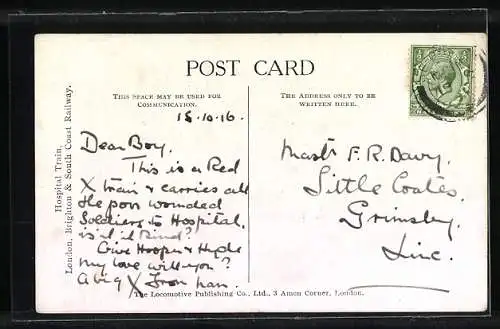 POST CARD
THIS SPACE MAY BE USED FOR
COMMUNICATION.
THE ADDRESS ONLY TO BE
WRITTEN HERE.
Hospital Train,
London, Brighton & South Coast Railway.
15.10.16.
Dear Boy.
This is a Red
X train & carries all
the poor wounded
Soldiers to Hospital,
is'it it kind?
Give Hooper & Hyde
my love will you?
A big X from
Mastr F. R. Davy.
Little Coates.
Grimsby.
Linc.
The Locomotive Publishing Co., Ltd., 3 Amen Corner, London.